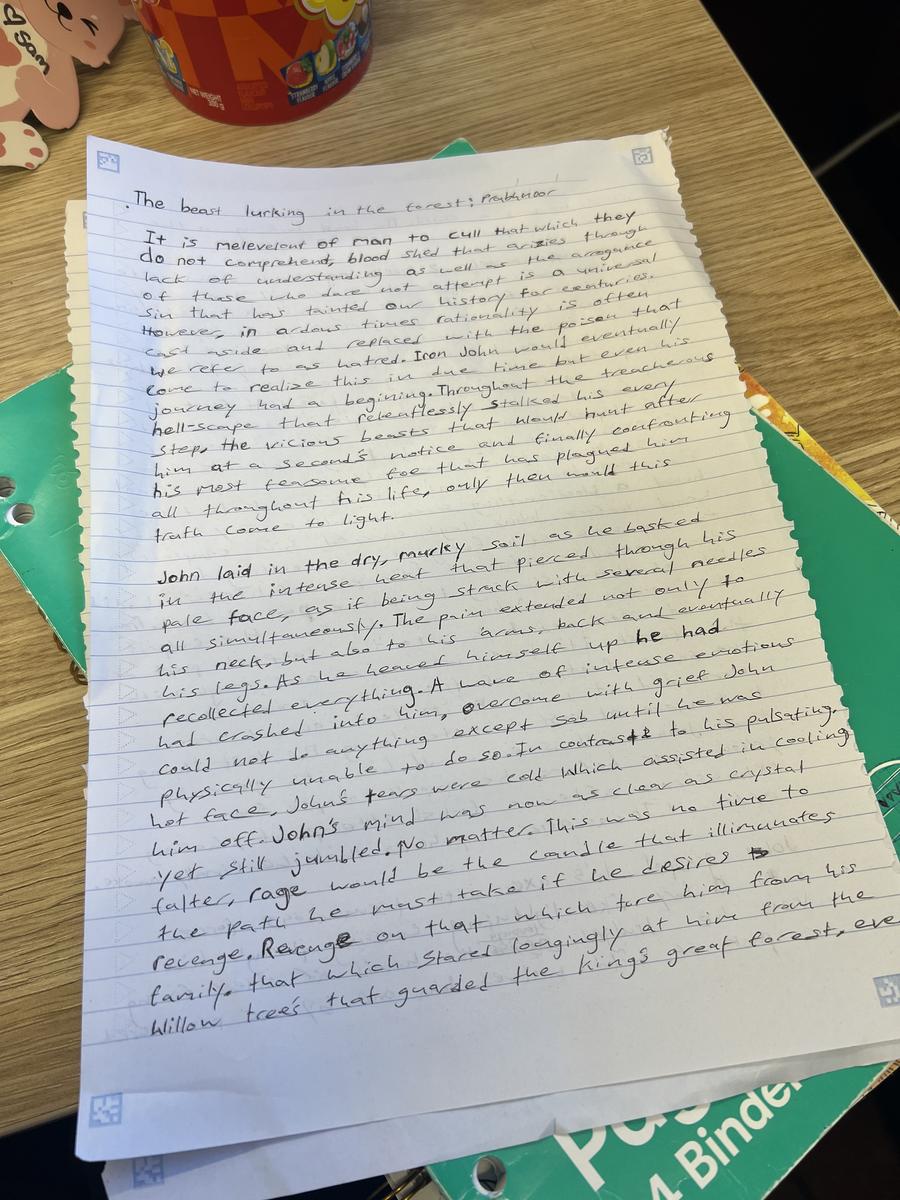 Sam
NET WEIGHT
STRAWBERRY
FLAVOUR
The beast lurking in the forest: Prabhnoor
It is melevelent of man to cull that which they
do not comprehend, blood shed that arizies through
lack of understanding as well as the arrogance
of those who dare not attempt is a universal
sin that has tainted our history for centuries.
However, in ardous times rationality is often
cast aside and replaced with the poison that
we refer to as hatred. Iron John would eventually
come to realize this in due time but even his
journey had a begining. Throughout the treacherous
hell-scape that relentlessly stalked his every
step, the vicious beasts that would hunt after
him at a second's notice and finally confronting
his most fearsome foe that has plagued him
all throughout his life, only then would this
truth come to light.
John laid in the dry, murky soil as he basked
in the intense heat that pierced through his
pale face, as if being struck with several needles
all simultaneously. The pain extended not only to
his neck, but also to his arms, back and eventually
his legs. As he heaved himself up he had
recollected everything. A wave of intense emotions
had crashed into him, overcome with grief John
could not do anything except sob until he was
physically unable to do so. In contrast to his pulsating,
hot face, John's tears were cold which assisted in cooling
him off. John's mind was now as clear as crystal
yet still jumbled. No matter. This was no time to
falter, rage would be the candle that illimunates
the path he must take if he desires
revenge. Revenge on that which tore him from his
family. that which stared longingly at him from the
Willow tree's that guarded the king's great forest, eve
Pag
4 Binder